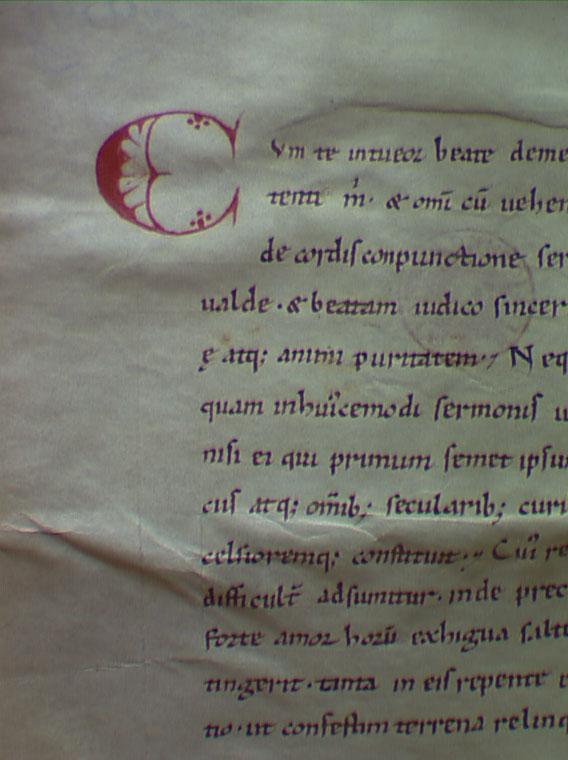 Cum te intueor beate deme
tenti m̄. & om̄i cū uehen
de cordis conpunctione ser
ualde. & beatam iudico sincer
ę atq; animi puritatem; Neq
quam inhuı᷒cemodi sermonis u
nisi ei qui primum semet ipsu
cus atq; om̄ib; secularib; curi
celsioremq; constituit; Cui᷒ re
difficult̄ adsumitur. inde prec
forte amor horū exhigua salte
tingerit. tanta in eis repente e
tio. ut confestim terrena relinq